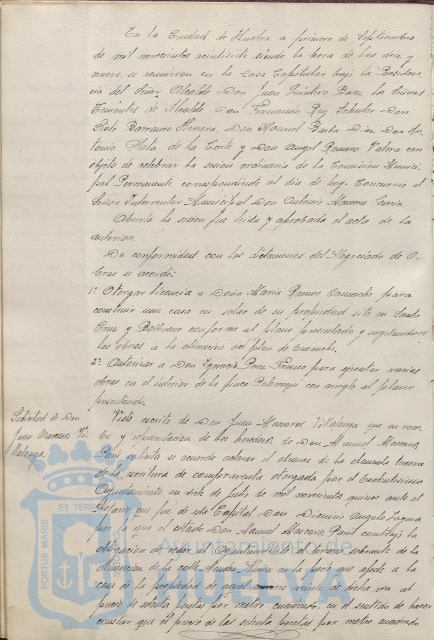 En la Ciudad de Huelva a primero de Septiembre
de mil novecientos veintisiete siendo la hora de las diez y
nueve, se reunieron en la Casa Capitular bajo la Presiden-
cia del Señor Alcalde Don Juan Quintero Baez los Señores
Tenientes de Alcalde Don Fernando Rey Schuler Don
Sixto Barranco Herrera, Don Manuel Barba Diaz Don An-
tonio Mata de la Corte y Don Angel Romero Valera con
objeto de celebrar la sesion ordinaria de la Comision Munici-
pal Permanente correspondiente al dia de hoy. Concurrió el
Señor Interventor Municipal Don Antonio Marcos
Abierta la sesion fue leida y aprobada el acta de la
anterior.
De conformidad con los dictamenes del Negociado de O-
bras se acordó:
1º Otorgar licencia a Doña Maria Ramos Camacho para
construir una casa en solar de su propiedad sito en Santa
Cruz y conforme al plano presentado y sujetandose
las obras a la alineacion del plan de Ensanche.
2º Autorizar a Don Ignacio Franco para ejecutar varias
obras en el interior de la finca con arreglo al plano
presentado.
Solicitud de Don
Juan Mascaros Vi-
llalonga.
Visto escrito de Don Juan Mascaros Villalonga que en nom-
bre y representacion de los herederos de Don Manuel Mascaros
Pons solicita se acuerde aclarar el alcance de la clausula tercera
de la escritura de compraventa otorgada por el Excelentisimo
Ayuntamiento en siete de Julio de mil novecientos quince ante el
Notario que fue de esta Capital Don Dionisio Angulo Laguna
por la que el citado Don Manuel Mascaros Pons contrajo la
obligacion de ceder al Ayuntamiento el terreno sobrante de la
alineacion de la calle en la parte que afecte a la
casa de la propiedad de aquel recinto de dicha via al
precio de setenta pesetas por metro cuadrado, en el sentido de hacer
constar que el precio de las setenta pesetas por metro cuadrado
PORTUS MARIS ET TERRAE
Ayuntamiento de
HUELVA